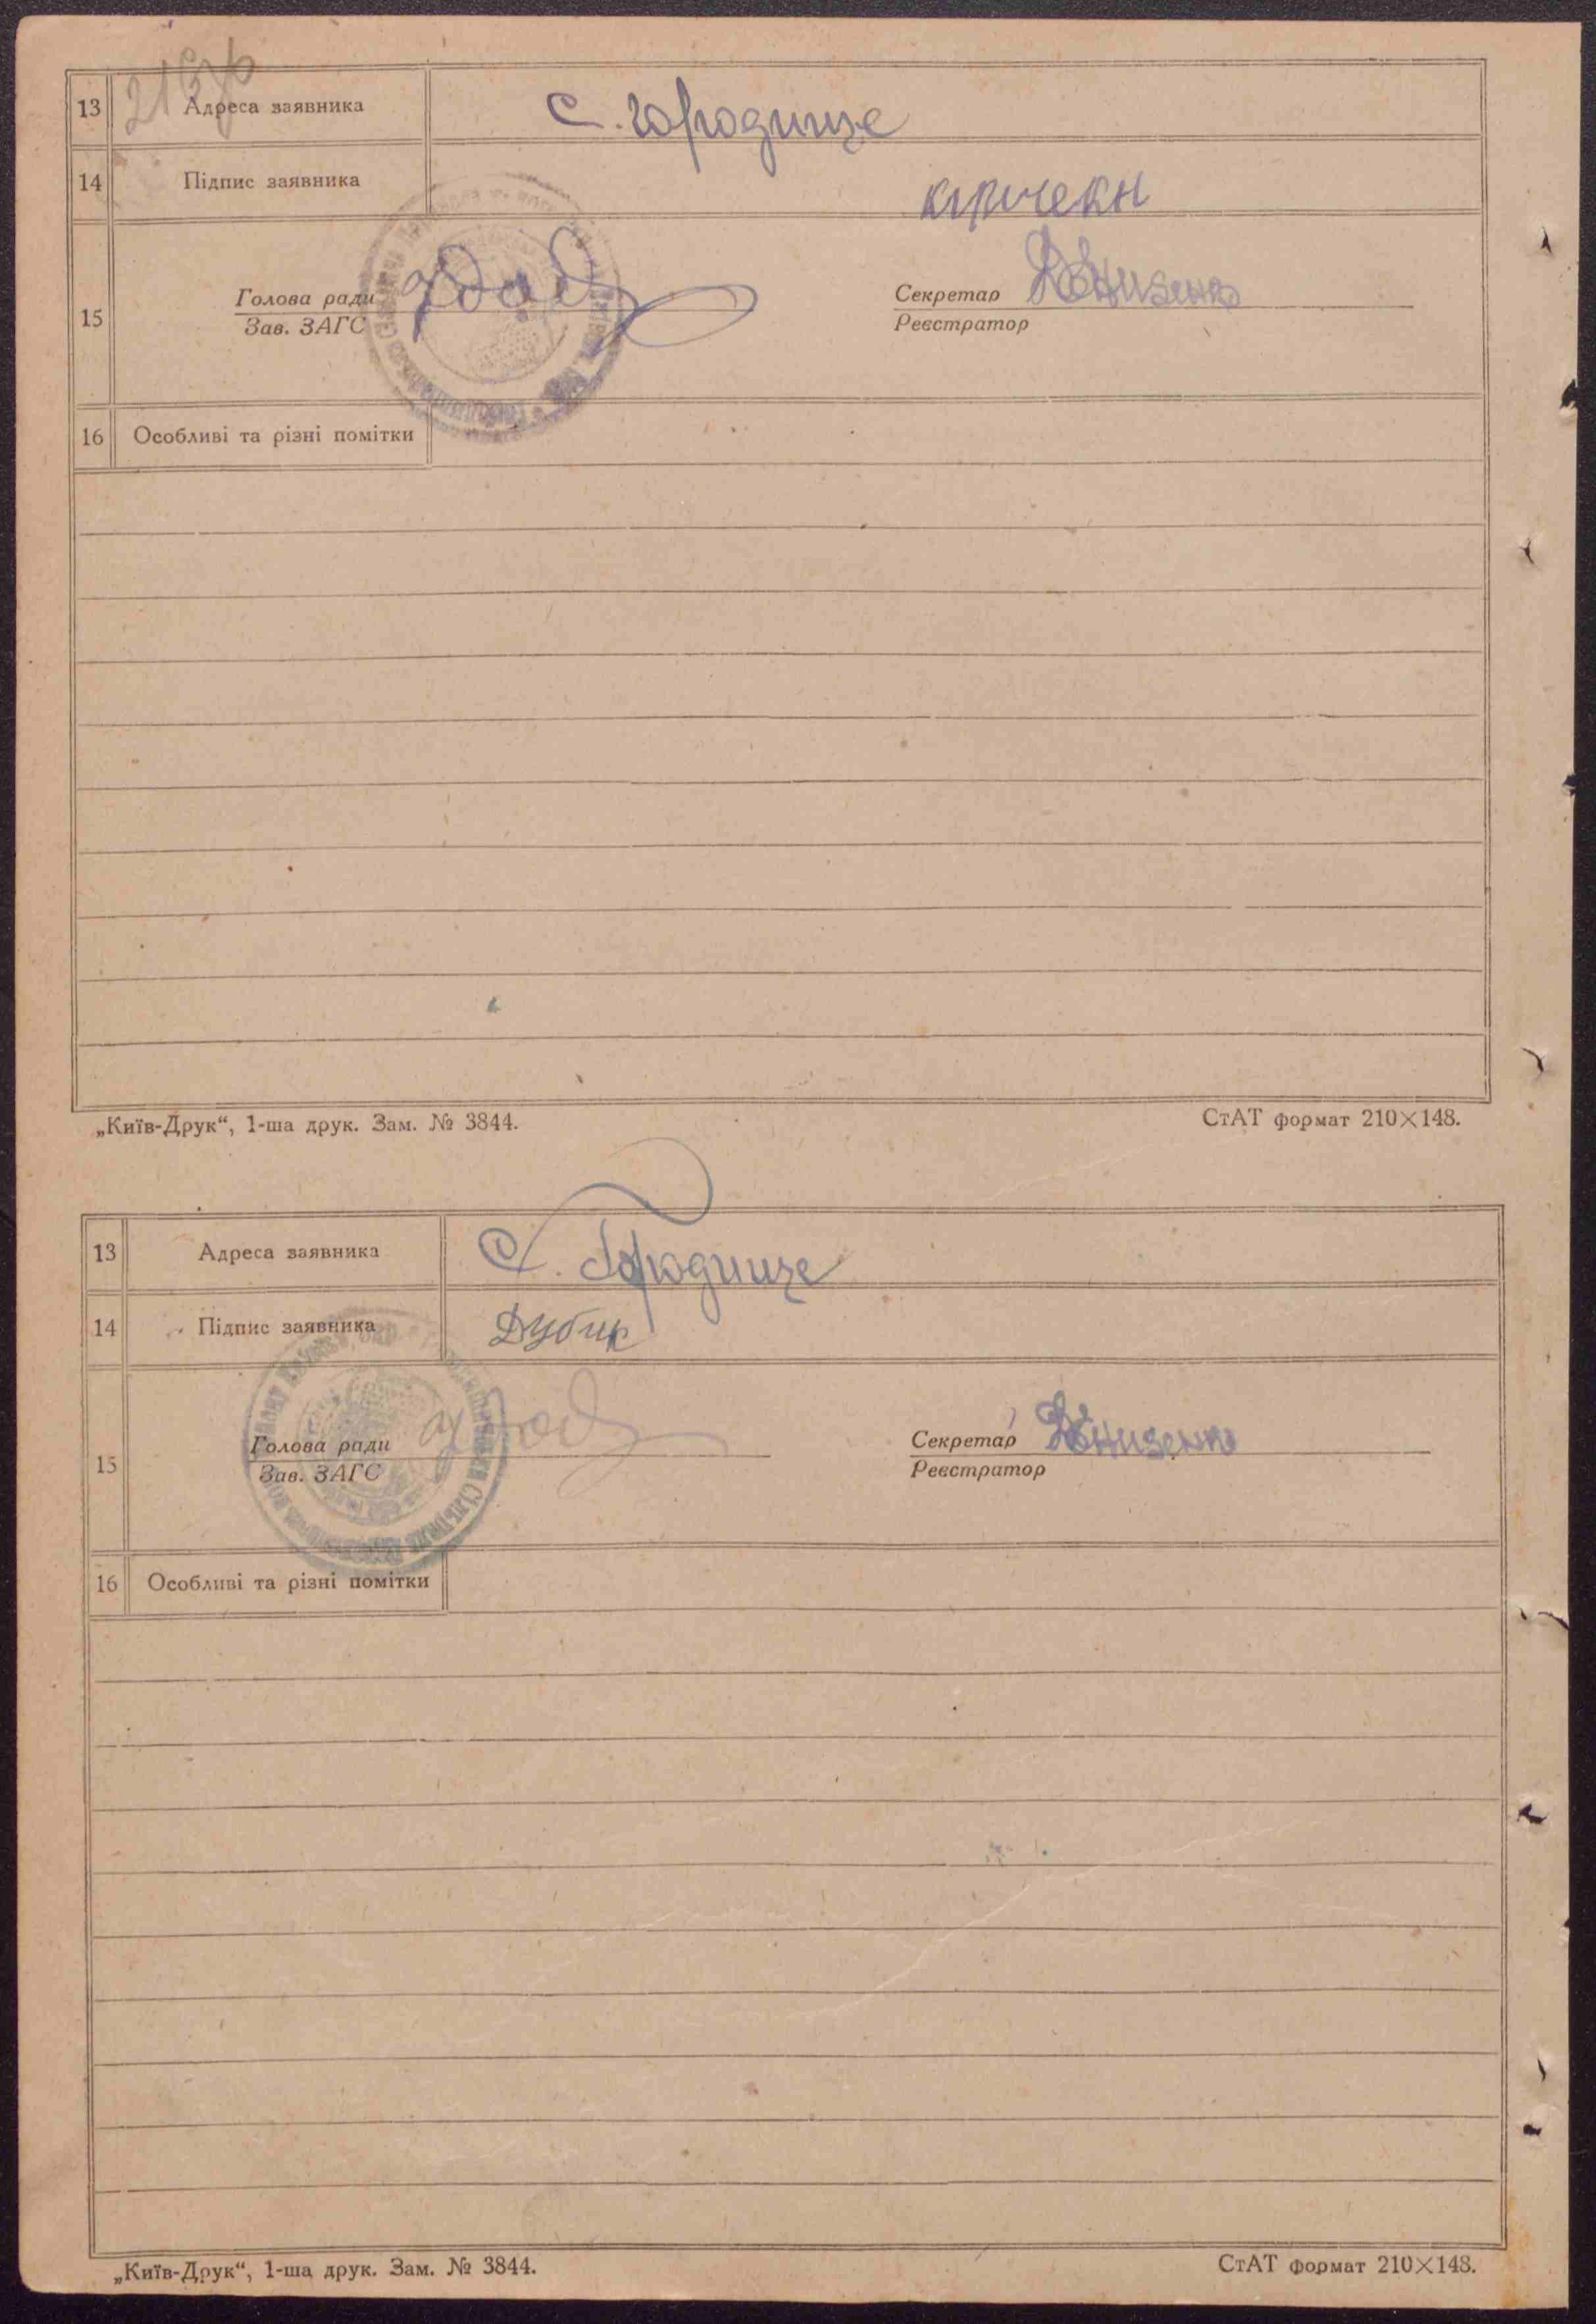 13 Адреса заявника С. Городище
14 Підпис заявника
15 Голова ради Секретар Денисенко
Зав. ЗАГС Реєстратор
16 Особливі та різні помітки
„Київ-Друк“, 1-ша друк. Зам. № 3844. СтАТ формат 210×148.
13 Адреса заявника С. Городище
14 Підпис заявника Дубик
15 Голова ради Секретар Денисенко
Зав. ЗАГС Реєстратор
16 Особливі та різні помітки
„Київ-Друк“, 1-ша друк. Зам. № 3844. СтАТ формат 210×148.